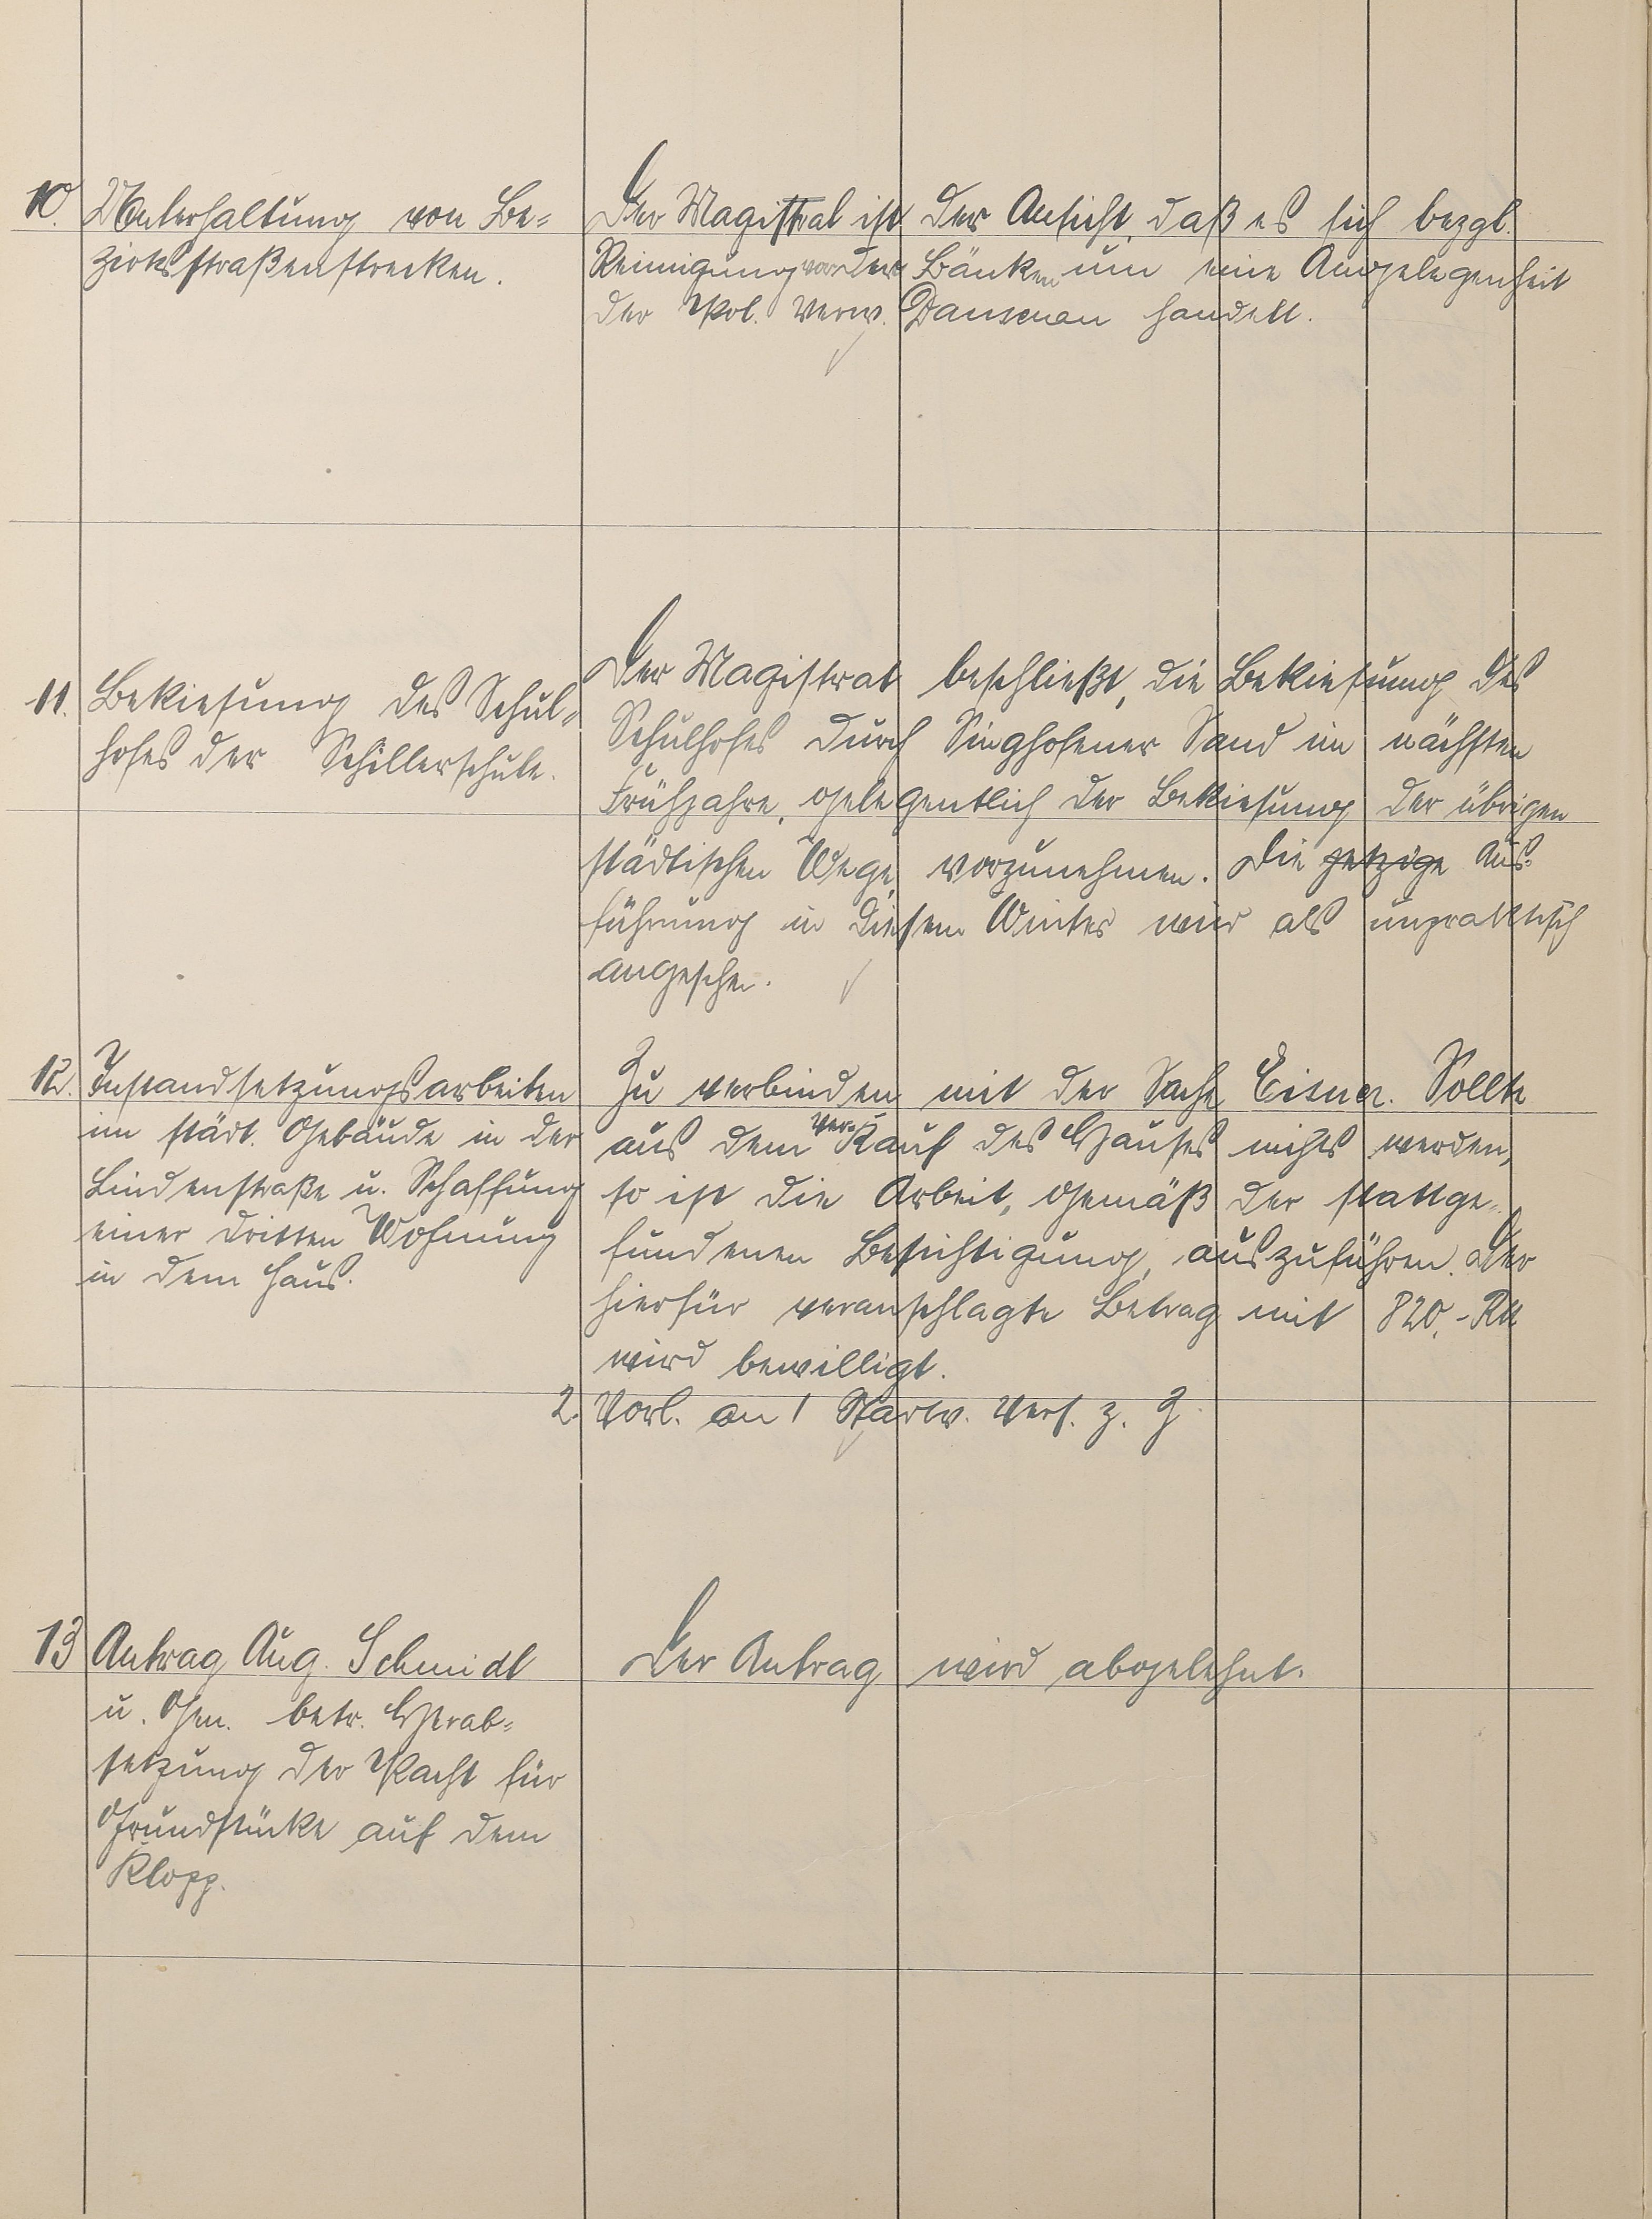 10. Unterhaltung von Be-
zirksstraßenstrecken.
Der Magistrat ist der Ansicht, daß es sich bezgl.
Reinigung von der Bänken um eine Angelegenheit
der Pol. Verw. Dausenau handelt.
11. Bekiesung des Schul-
hofes der Schillerschule.
Der Magistrat beschließt, die Bekiesung des
Schulhofes durch Singhofener Sand im nächsten
Frühjahre, gelegentlich der Bekiesung der übrigen
städtischen Wege, vorzunehmen. Die jetzige Aus-
führung in diesem Winter wird als unpraktisch
angesehen.
12. Instandsetzungsarbeiten
im städt. Gebäude in der
Lindenstraße u. Schaffung
einer dritten Wohnung
in dem Haus.
Zu verbinden mit der Sache Eisner. Sollte
aus dem Ver-Kauf des Hauses nichts werden,
so ist die Arbeit, gemäß der stattge-
fundenen Besichtigung, auszuführen. Der
hierfür veranschlagte Betrag mit 820,- RM
wird bewilligt.
2. Vorl. an Stadtv. Vers. z. Z.
13 Antrag Aug. Schmidt
u. Gen. betr. Herab-
setzung der Pacht für
Grundstücke auf dem
Klopp.
Der Antrag wird abgelehnt.